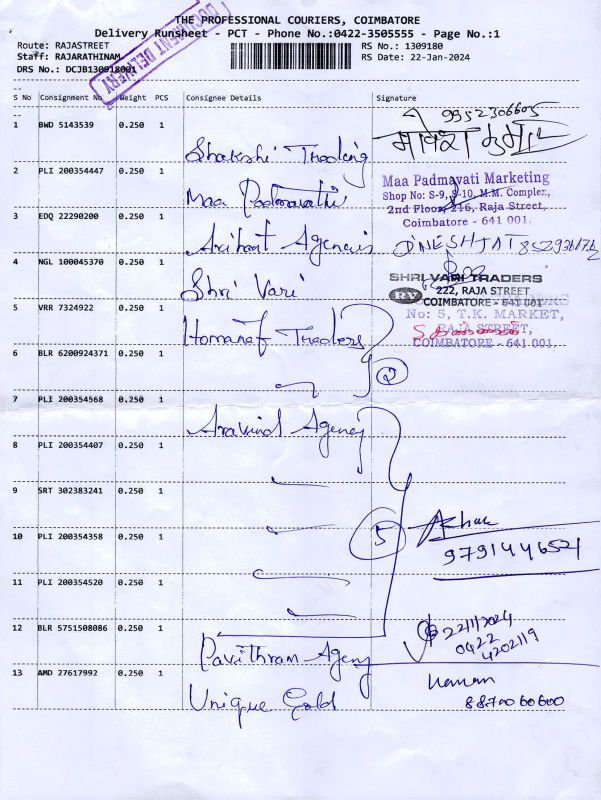 THE PROFESSIONAL COURIERS, COIMBATORE
Delivery Runsheet - PCT - Phone No.:0422-3505555 - Page No.:1
Route: RAJASTREET
RS No.: 1309180
Staff: RAJARATHINAM
RS Date: 22-Jan-2024
DRS No.: DCJB130918001
DOCUMENT DELIVERY
S No Consignment No Weight PCS Consignee Details Signature
9952306605
1 BWD 5143539 0.250 1 Shakshi Trading
2 PLI 200354447 0.250 1 Maa Padmavathi
Maa Padmavati Marketing
Shop No: S-9, S-10, M.M. Complex,
2nd Floor, 216, Raja Street,
Coimbatore - 641 001.
3 EDQ 22290200 0.250 1 Arihant Agencies
4 NGL 100045370 0.250 1 Shri Vari
SHRI VARI TRADERS
RV 222, RAJA STREET
COIMBATORE - 641 001
5 VRR 7324922 0.250 1 Traders
No: 5, T.K. MARKET,
RAJA STREET,
COIMBATORE - 641 001.
6 BLR 6200924371 0.250 1
2
7 PLI 200354568 0.250 1 Aravind Agency
8 PLI 200354407 0.250 1
9 SRT 302383241 0.250 1
10 PLI 200354358 0.250 1
5
11 PLI 200354520 0.250 1
12 BLR 5751508086 0.250 1 Pavithram Agency
22/1/2024
0422
4202119
13 AMD 27617992 0.250 1 Unique Gold
8870060600